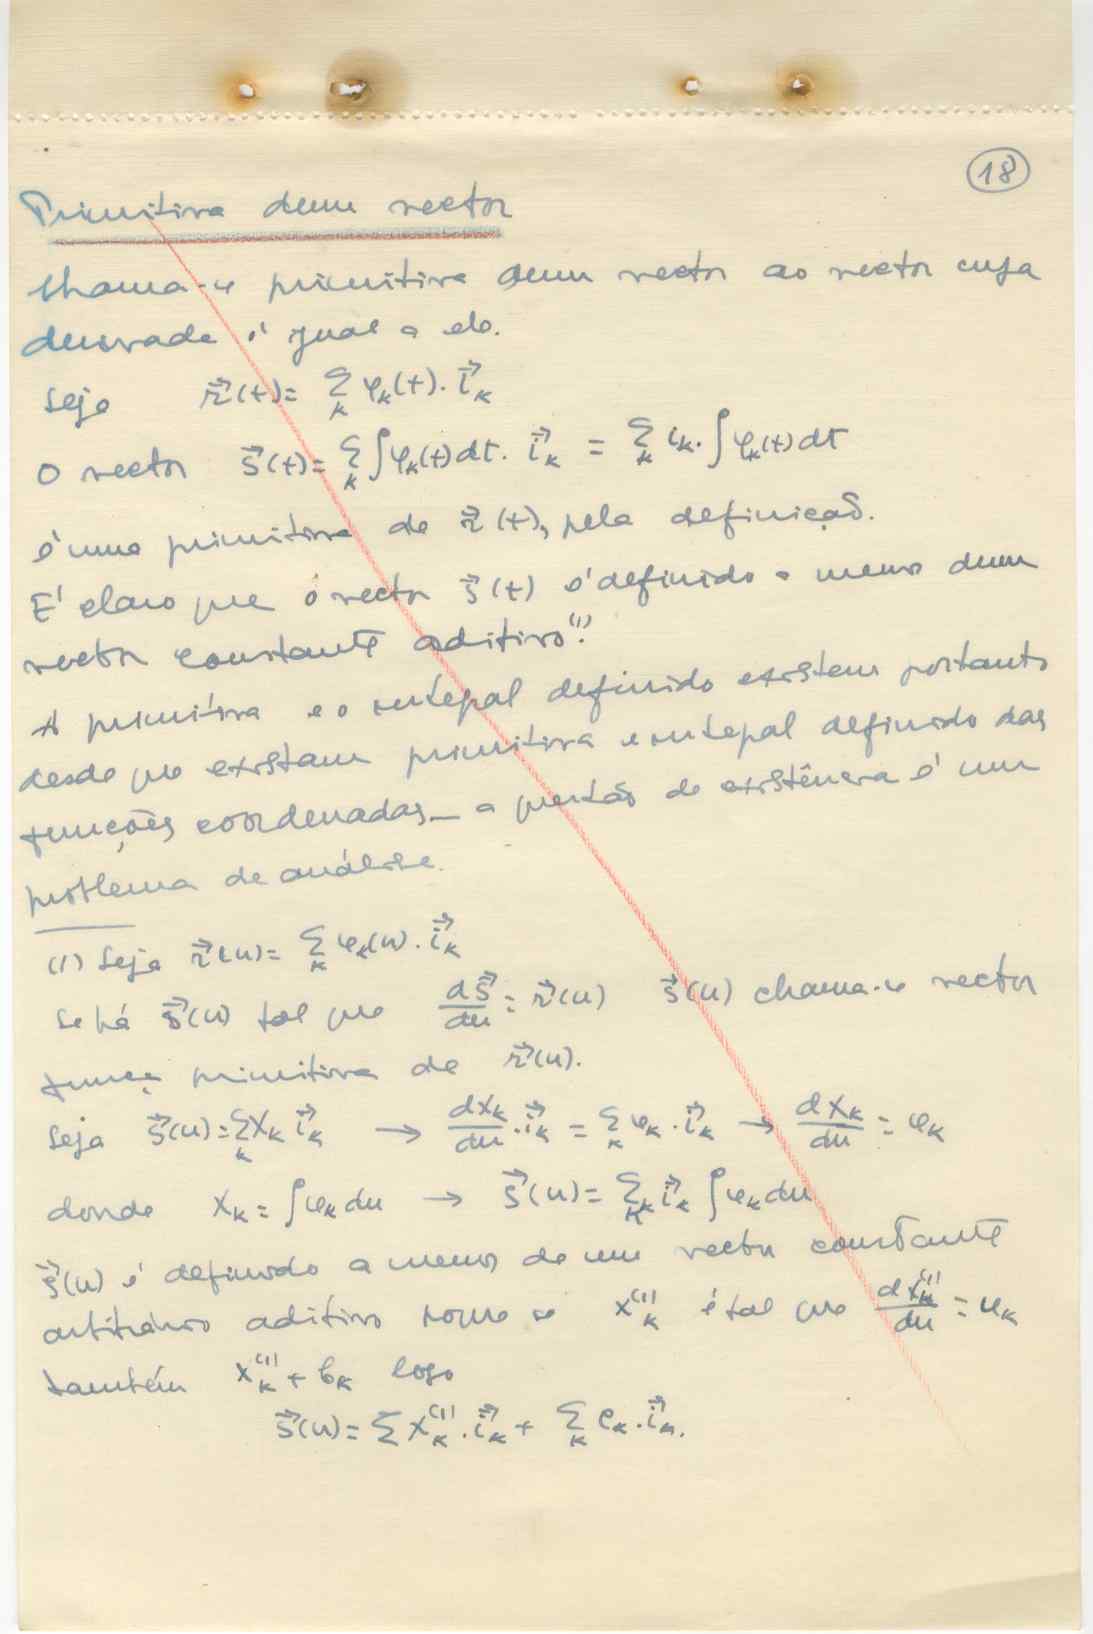 18
Primitiva dum vector
Chama-se primitiva dum vector ao vector cuja
derivada é igual a ele.
Seja r⃗(t) = Σ_k φ_k(t). i⃗_k
O vector s⃗(t) = Σ_k ∫φ_k(t)dt. i⃗_k = Σ_k i_k. ∫φ_k(t)dt
é uma primitiva de r⃗(t), pela definição.
É claro que o vector s⃗(t) é definido a menos dum
vector constante aditivo(1).
A primitiva e o integral definido existem portanto
desde que existam primitiva e integral definido das
funções coordenadas _ a questão de existência é um
problema de análise.
(1) Seja r⃗(u) = Σ_k φ_k(u). i⃗_k
Se há s⃗(u) tal que ds⃗/du = r⃗(u) s⃗(u) chama-se vector
função primitiva de r⃗(u).
Seja s⃗(u) = Σ_k X_k i⃗_k → dx_k/du . i⃗_k = Σ_k φ_k . i⃗_k → dx_k/du = φ_k
donde X_k = ∫φ_k du → s⃗(u) = Σ_k i⃗_k ∫φ_k du
s⃗(u) é definido a menos de um vector constante
arbitrário aditivo se x_k^(1) é tal que dx_k^(1)/du = φ_k
também x_k^(1) + c_k logo
s⃗(u) = Σ x_k^(1) . i⃗_k + Σ_k c_k . i⃗_k.